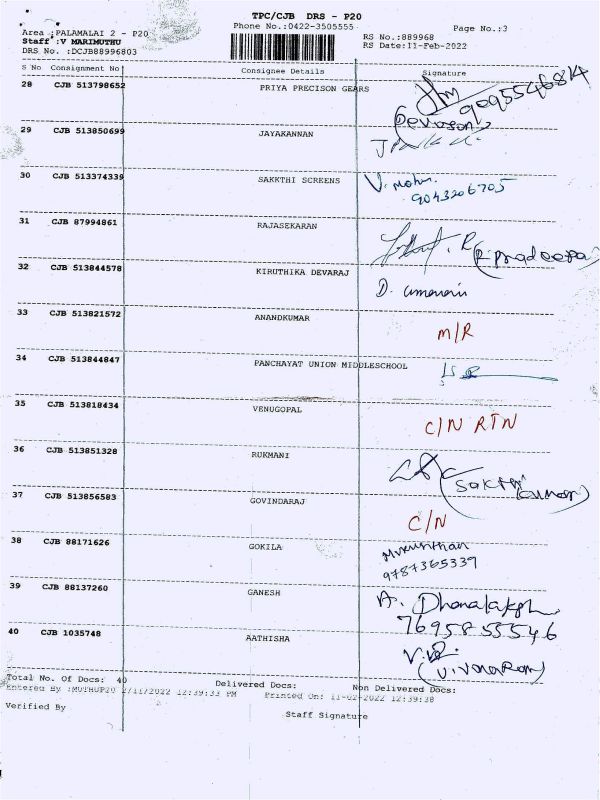 TPC/CJB DRS - P20
Area :PALAMALAI 2 - P20 Phone No.:0422-3505555 Page No.:3
Staff :V MARIMUTHU RS No.:889968
DRS No. :DCJB88996803 RS Date:11-Feb-2022
S No Consignment No Consignee Details Signature
28 CJB 513798652 PRIYA PRECISON GEARS 9095546814
(Devason)
29 CJB 513850699 JAYAKANNAN
30 CJB 513374339 SAKKTHI SCREENS V. Mohn.
9043206705
31 CJB 87994861 RAJASEKARAN
R (R Pradeepa)
32 CJB 513844578 KIRUTHIKA DEVARAJ
D. umarani
33 CJB 513821572 ANANDKUMAR
M/R
34 CJB 513844847 PANCHAYAT UNION MIDDLESCHOOL
35 CJB 513818434 VENUGOPAL
C/N RTN
36 CJB 513851328 RUKMANI
(Sakthi
Kumar)
37 CJB 513856583 GOVINDARAJ
C/N
38 CJB 88171626 GOKILA Mukunthan
9787365339
39 CJB 88137260 GANESH A. Dhanalaksh
7695855546
40 CJB 1035748 AATHISHA
(V.VanaRam)
Total No. Of Docs: 40 Delivered Docs: Non Delivered Docs:
Entered By :MUTHUP20 2/11/2022 12:39:33 PM Printed On: 11-02-2022 12:39:38
Verified By Staff Signature